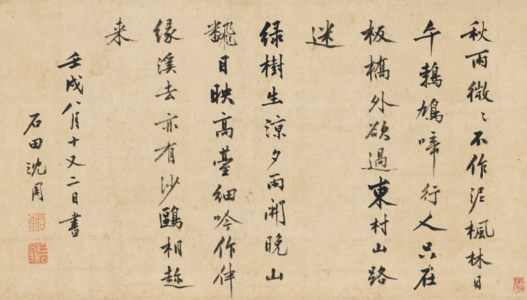 秋雨微〻不作泥楓林日
午鵓鳩啼行人只在
板橋外欲過東村山路
迷
綠樹生涼夕雨開晚山
飜日映高臺細吟作伴
緣溪去亦有沙鷗相趁
来
壬戌八月十又二日書
石田沈周